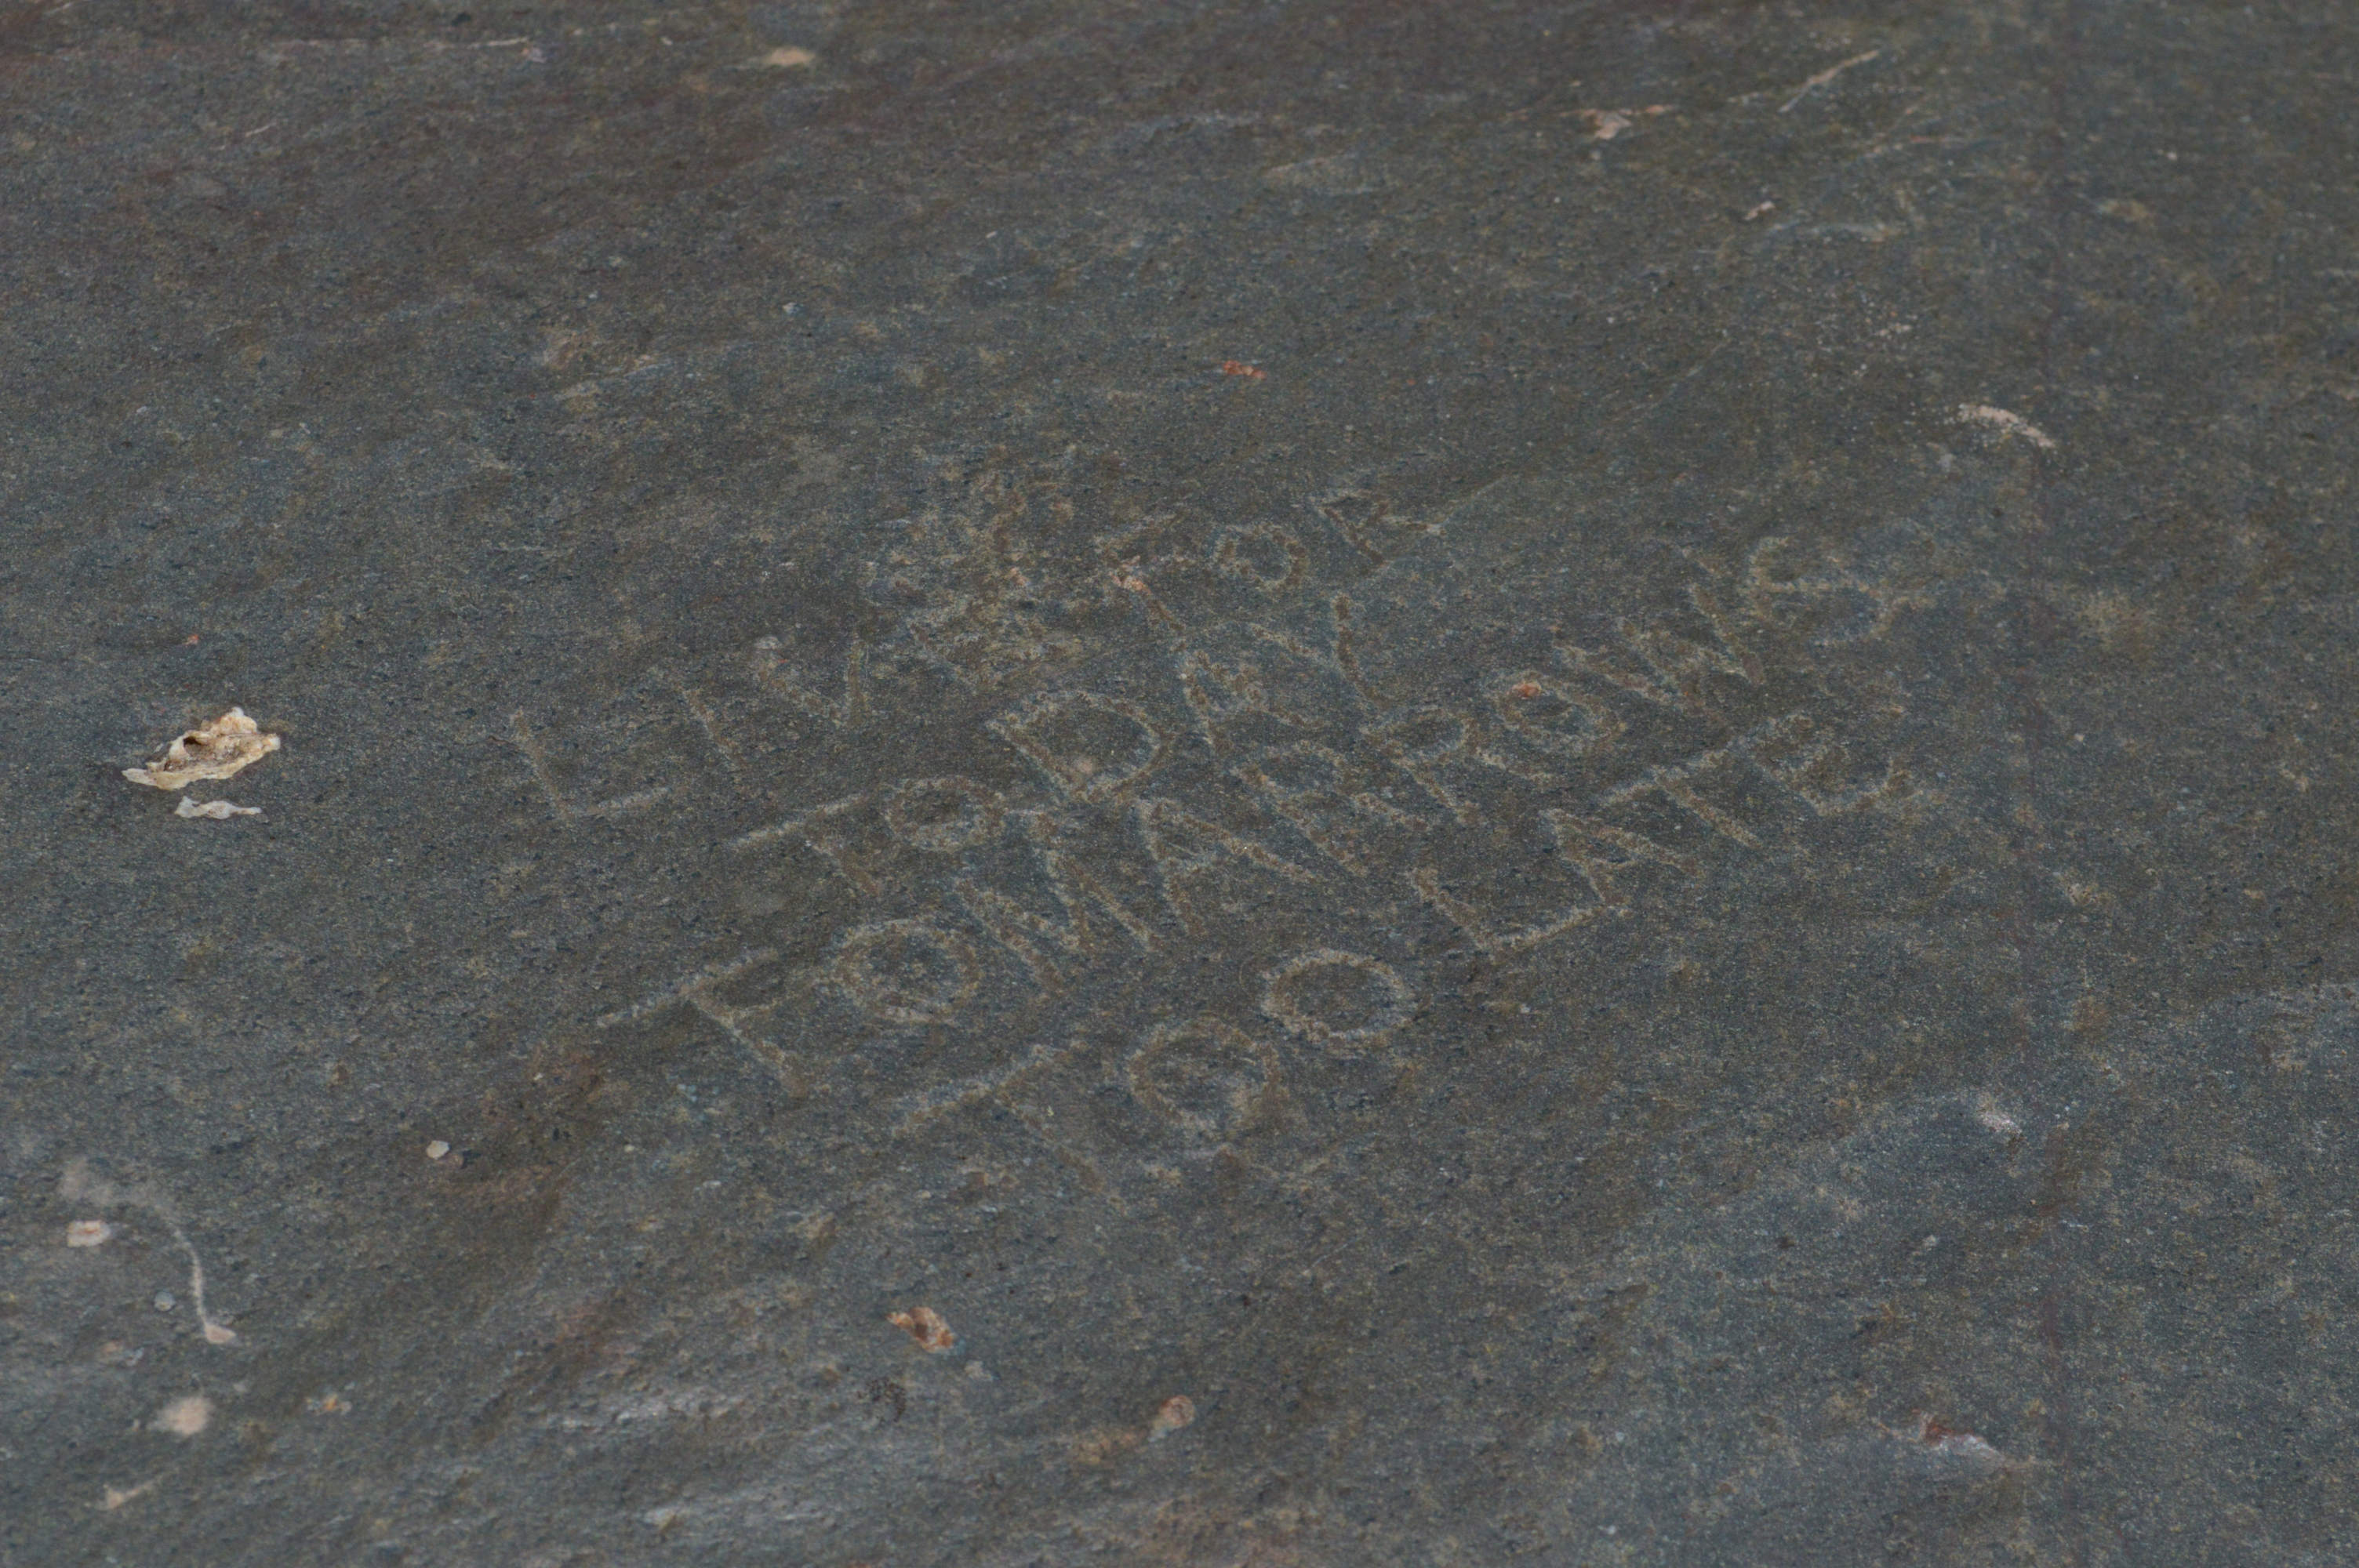 LIVE FOR
TODAY
TOMARROWS
TOO LATE